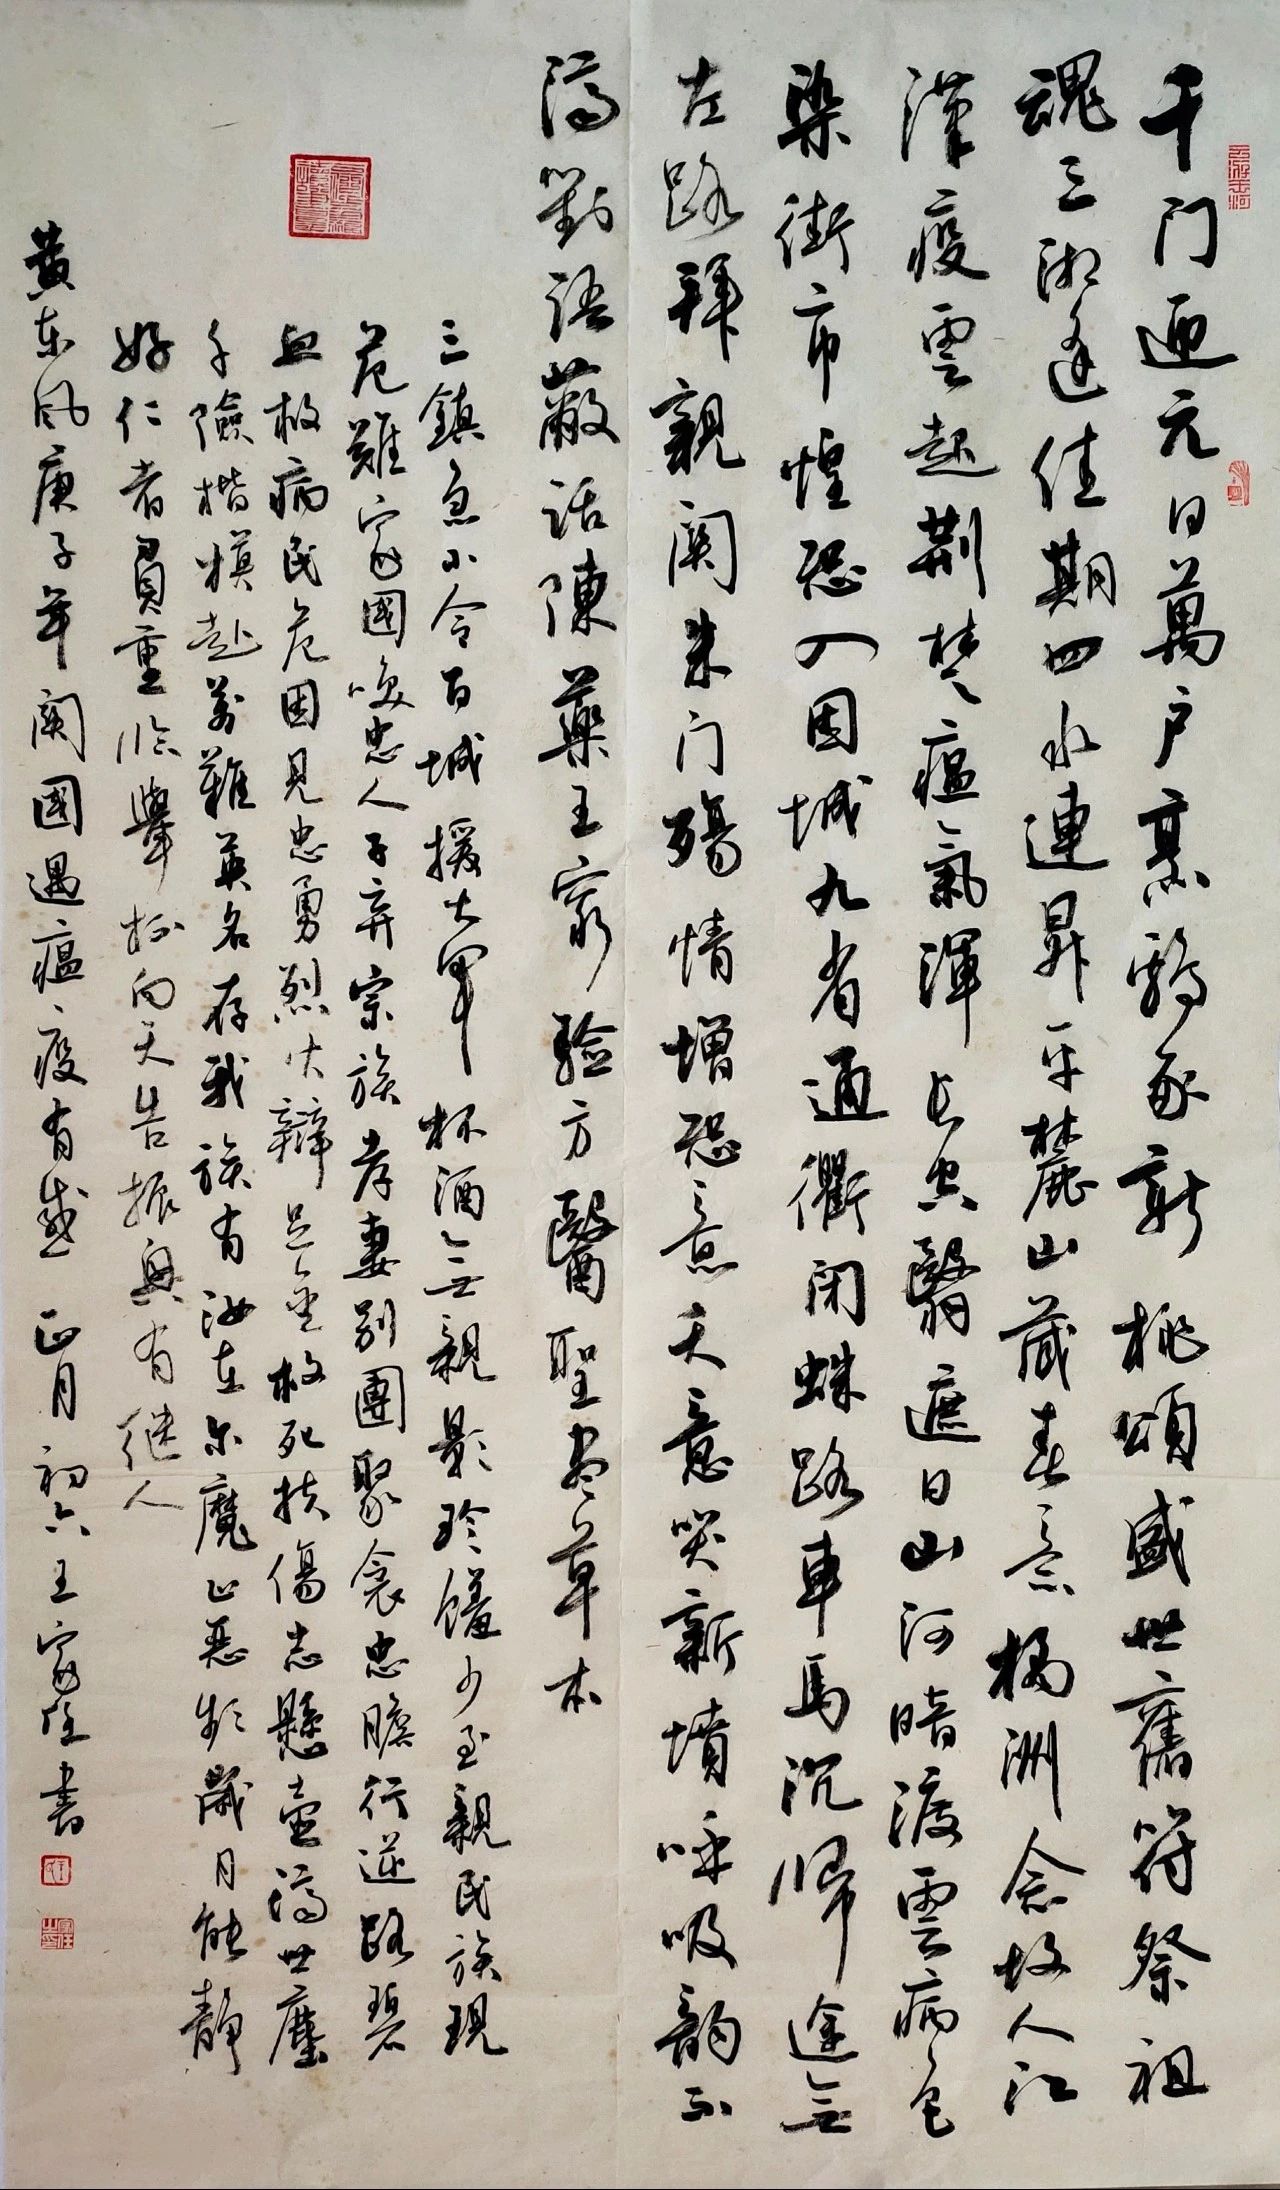 千门迎元日萬户烹鷄豚新桃頌盛世舊符祭祖
魂三湘逢佳期四水連昇平麓山藏春意橘洲念故人江
漢疫雲起荆楚瘟氣渾長空翳遮日山河暗渡雲病毒
染街市惶恐入困城九省通衢闭蛛路車馬沉歸途無
左路拜親闕朱门殤情增恐意天意哭新墳呼吸韵不
濟對語蔽話陳藥王窮驗方醫聖尽草本
三鎮急小令百城援大軍杯酒無親影珍饈少至親民族現
危難家國唤忠人子弃宗族孝妻别團聚衾忠膽行逆路碧
血救病民危困見忠勇烈火辯足金救死扶傷志懸壺濟世塵
千險楷模赴萬難英名存我族有汝在尔魔止惡歲月能静
好仁者負重临舉杯向天告振興有继人
黄東風庚子年闕國遇瘟疫有感 正月初六王家 書